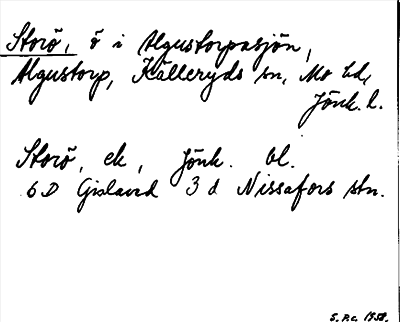 Storö, ö i Algustorpasjön,
Algustorp, Källeryds sn, Mo hd,
Jönk. l.
Storö, ek, Jönk. bl.
6 D Gislaved 3 d Nissafors stn.
S.P.C. 1958.